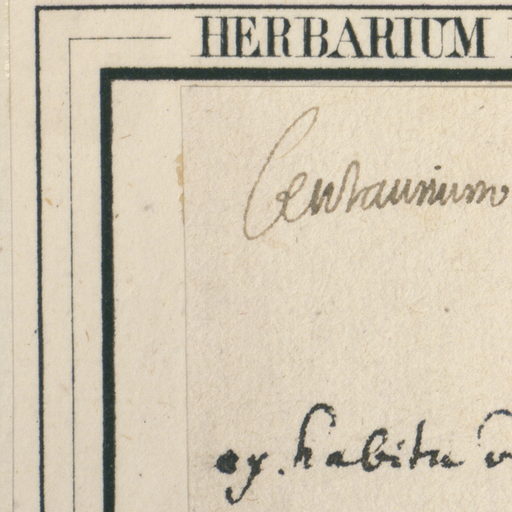 HERBARIUM
Centaurium
ex. habitu